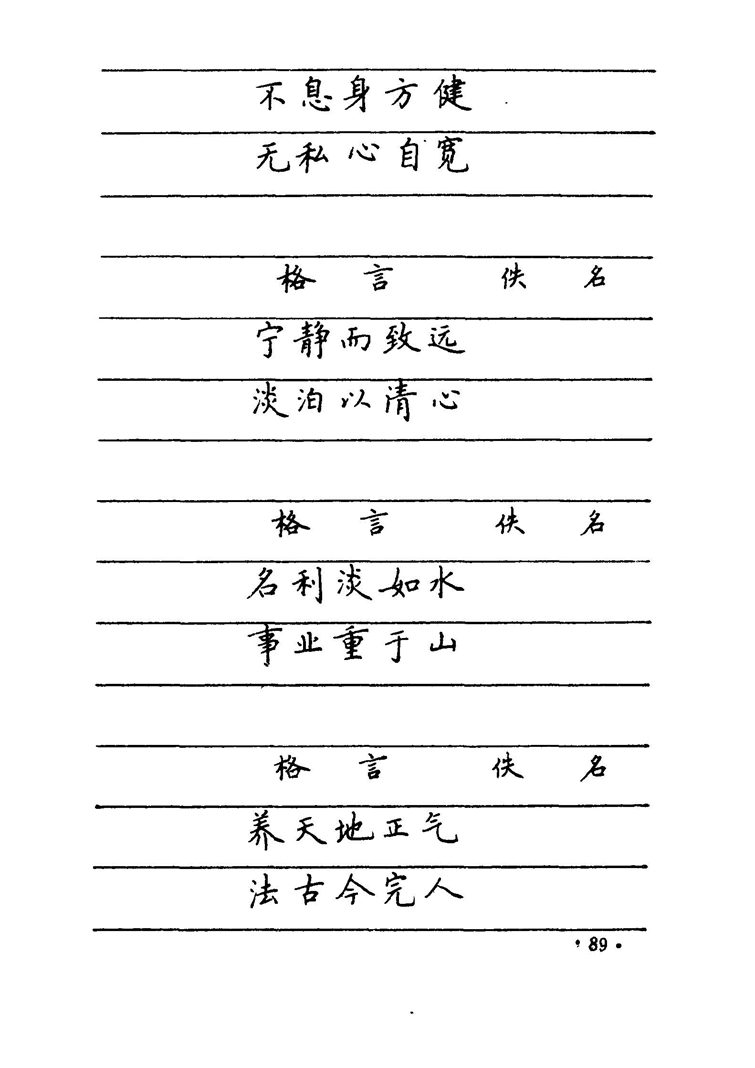 不息身方健
无私心自宽
格言 佚名
宁静而致远
淡泊以清心
格言 佚名
名利淡如水
事业重于山
格言 佚名
养天地正气
法古今完人
·89·